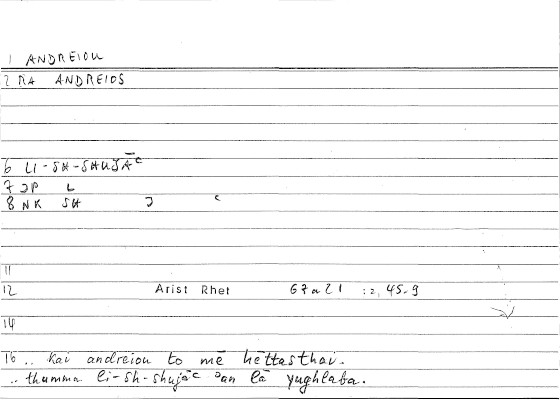 1 ANDREIOU
2 RA ANDREIOS
6 LI-SH-SHUJĀʿ
7 JP L
8 NK SH J ʿ
11
12 Arist Rhet 67a21 :2, 45.9
14
16 .. kai andreiou to mē hēttasthai.
.. thumma li-sh-shujāʿ ʾan lā yughlaba.